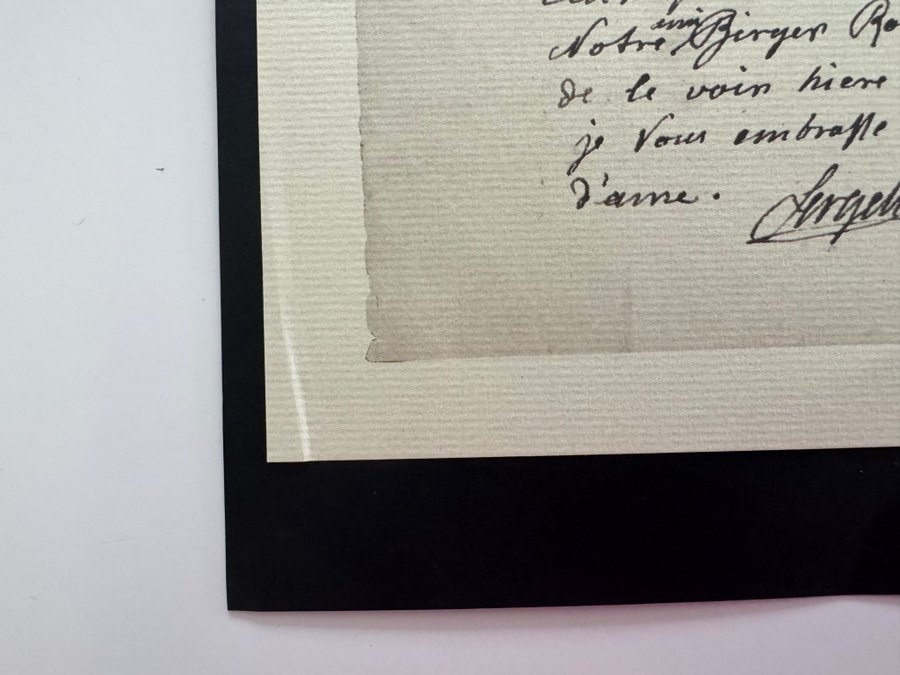 Notre ami Birger Ro
de le voir hiere
je Vous embrasse
d'ame.
Sergell